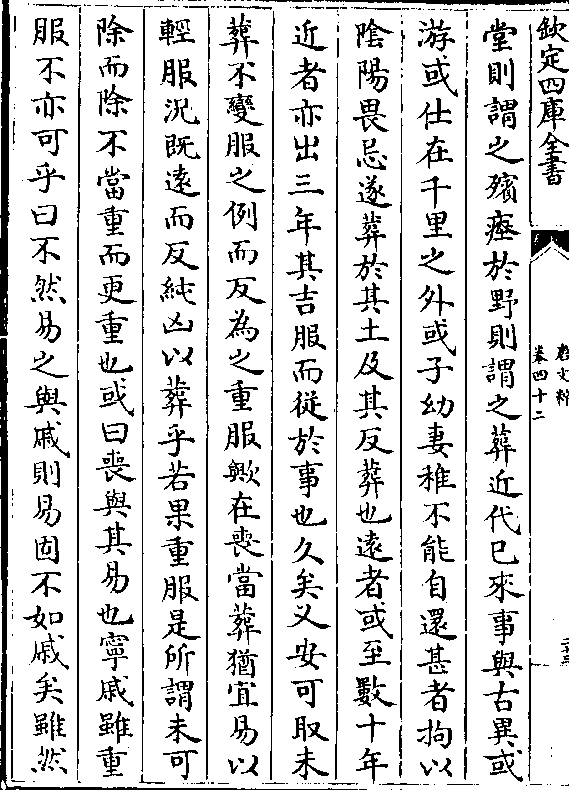 欽定四庫全書
唐文粹
卷四十二
堂則謂之殯瘞於野則謂之葬近代已來事與古異或
游或仕在千里之外或子幼妻稚不能自還甚者拘以
陰陽畏忌遂葬於其土及其反葬也遠者或至數十年
近者亦出三年其吉服而從於事也久矣又安可取未
葬不變服之例而反為之重服歟在喪當葬猶宜易以
輕服況既遠而反純凶以葬乎若果重服是所謂未可
除而除不當重而更重也或曰喪與其易也寧戚雖重
服不亦可乎曰不然易之與戚則易固不如戚矣雖然